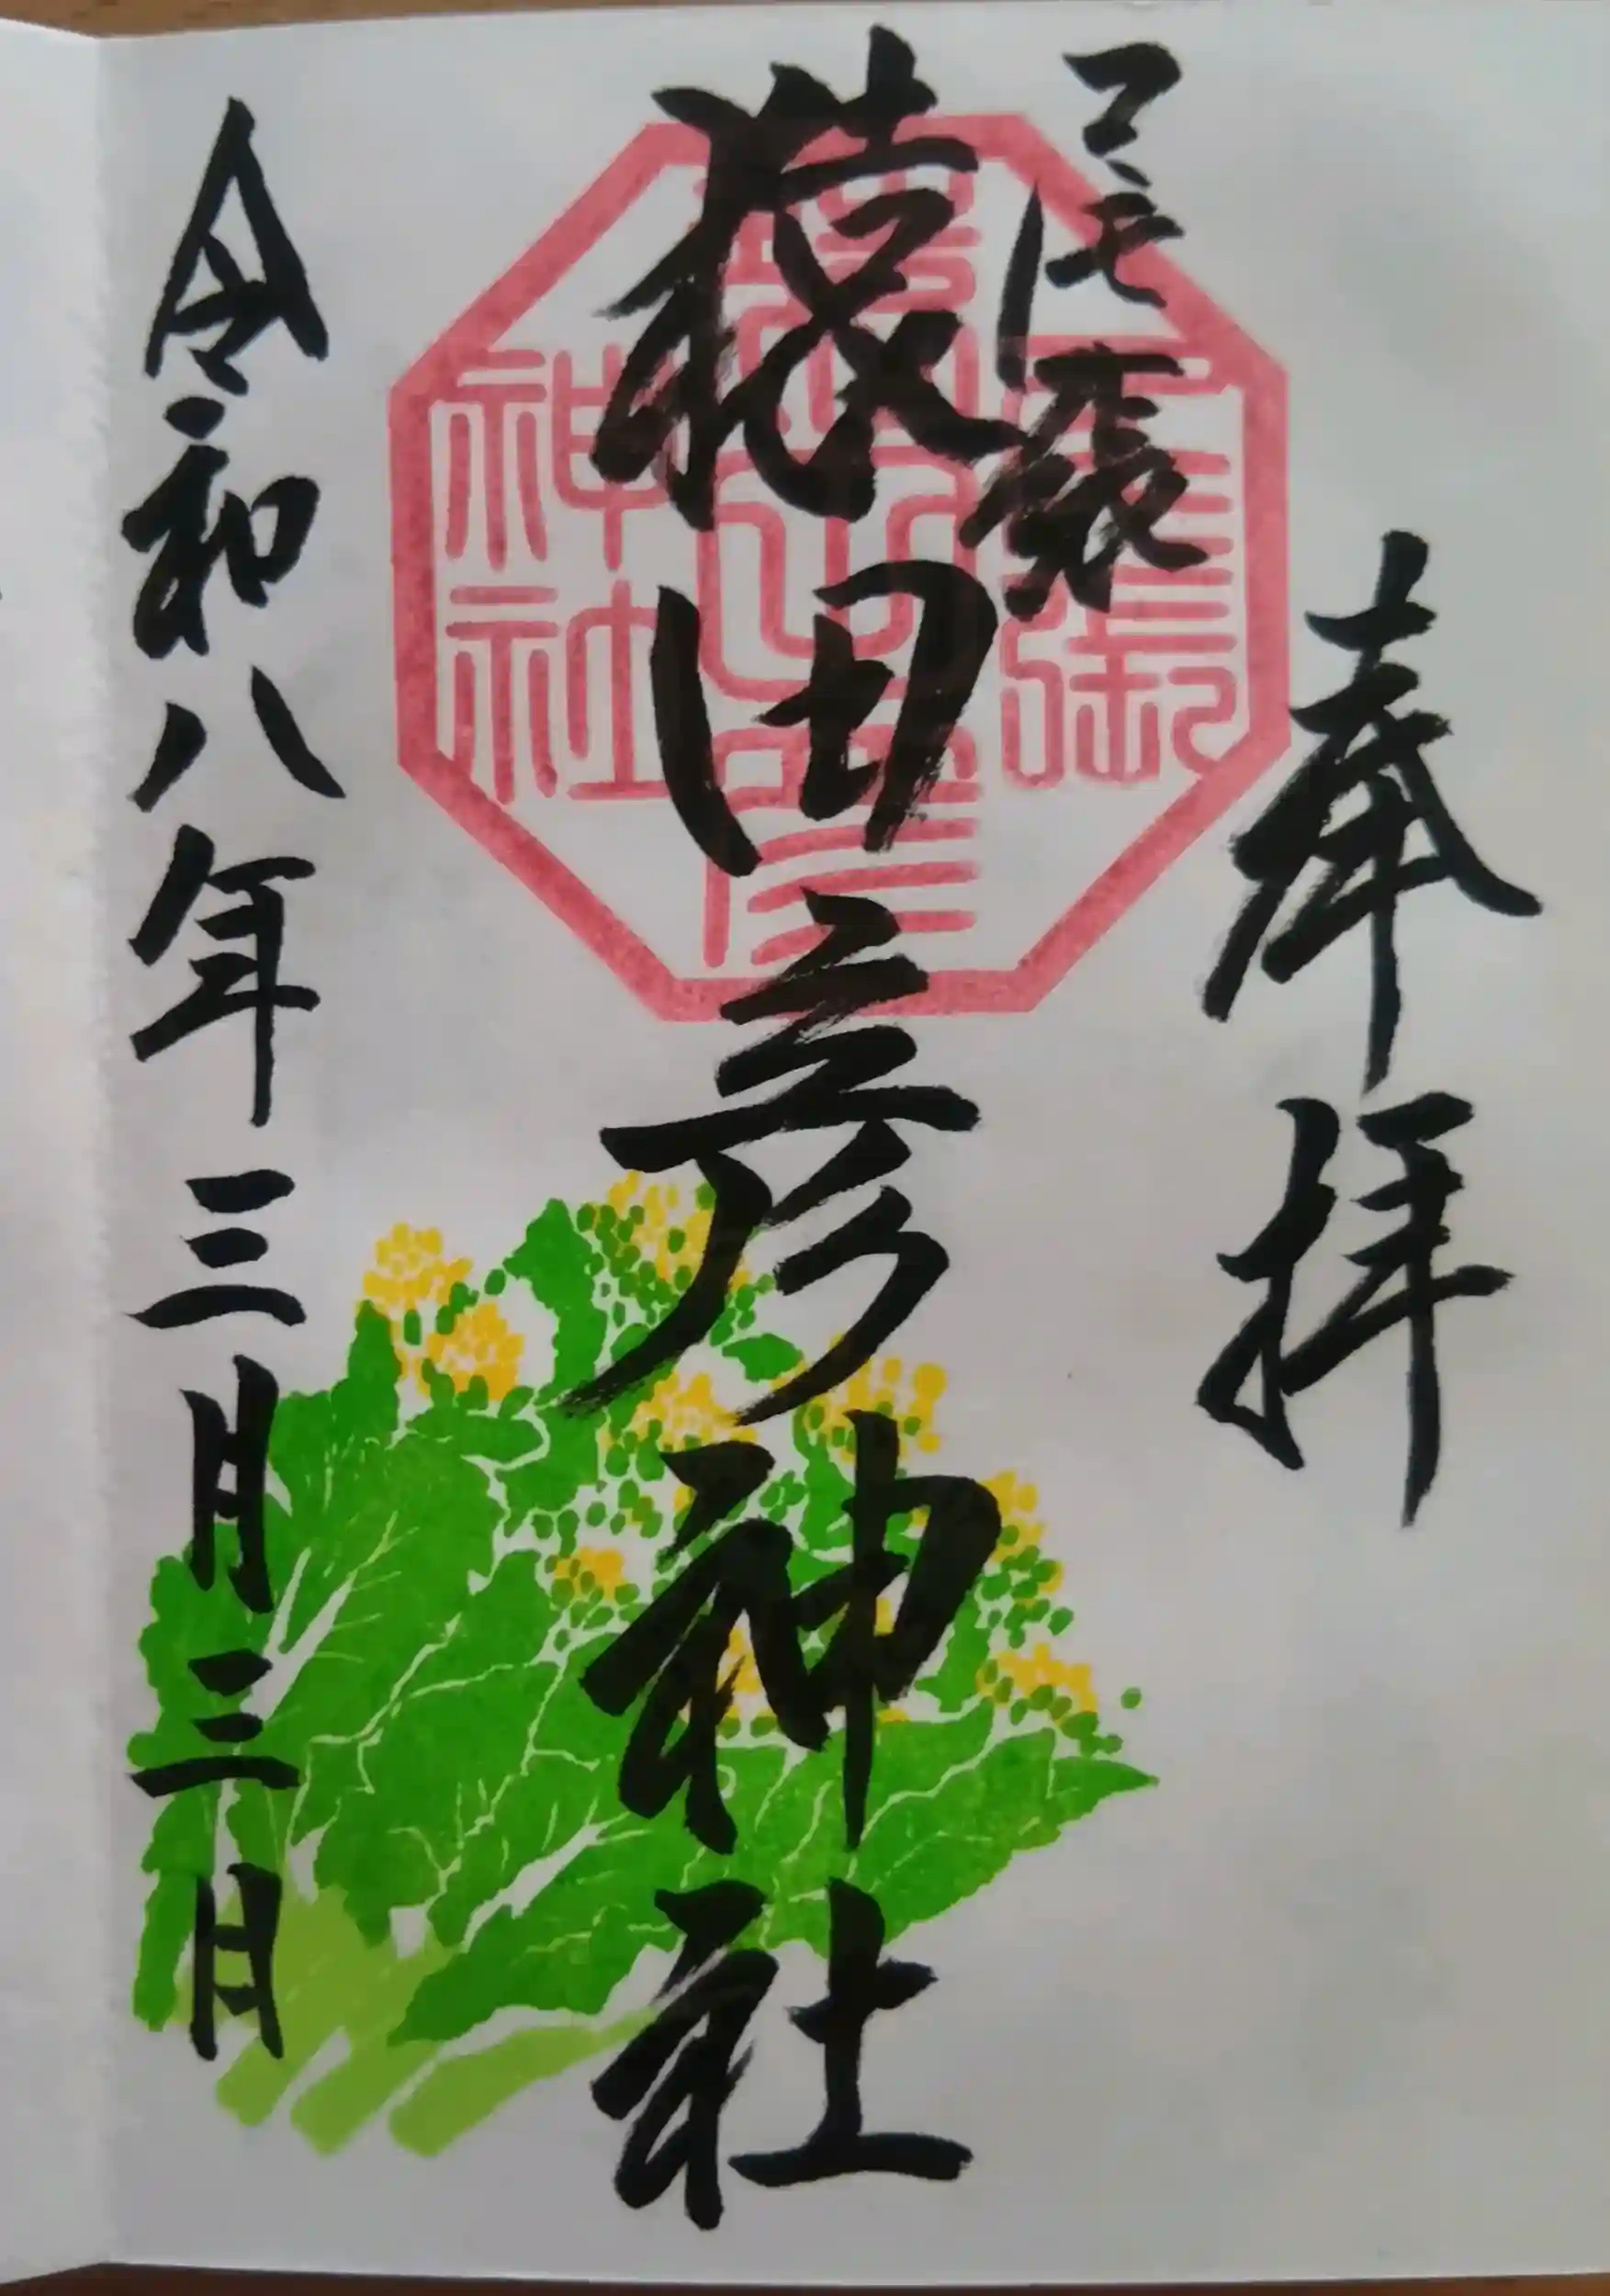 奉拝
尾張
猿田彦神社
令和八年三月三日
猿田彦
神社